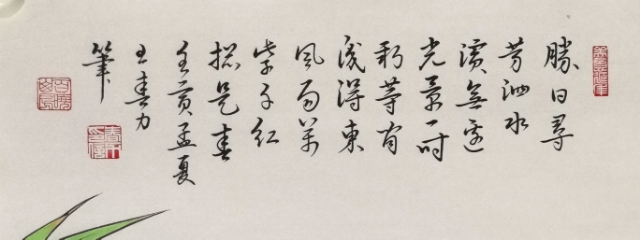 勝日尋
芳泗水
濱無邊
光景一時
新等閒
識得東
風面萬
紫千紅
總是春
壬寅孟夏
王春力
筆